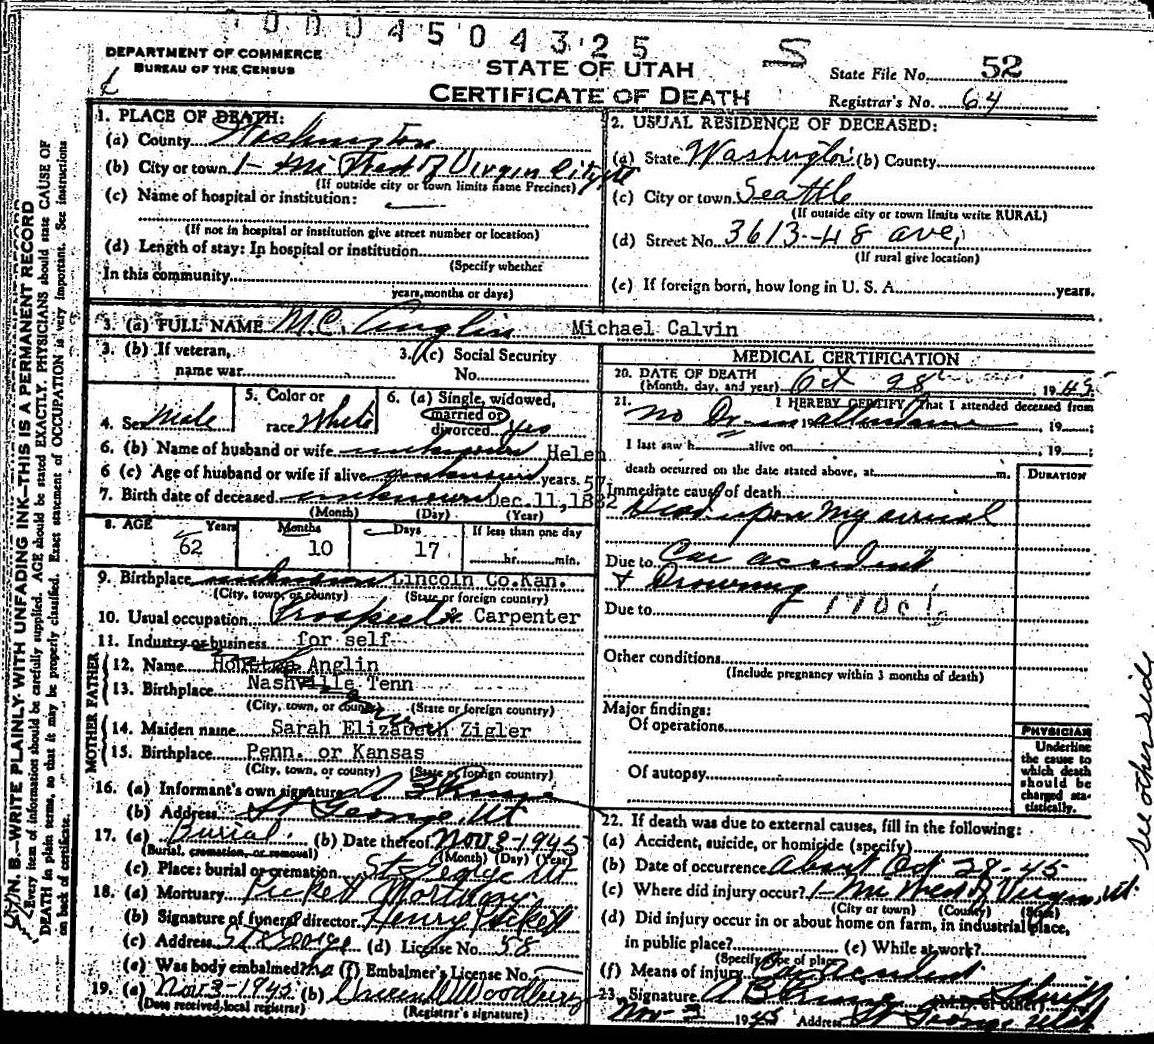 0004504325
DEPARTMENT OF COMMERCE
BUREAU OF THE CENSUS
S
STATE OF UTAH
CERTIFICATE OF DEATH
State File No. 52
Registrar's No. 64
N. B.—WRITE PLAINLY WITH UNFADING INK—THIS IS A PERMANENT RECORD
Every item of information should be carefully supplied. AGE should be stated EXACTLY. PHYSICIANS should state CAUSE OF
DEATH in plain terms, so that it may be properly classified. Exact statement of OCCUPATION is very important. See instructions
on back of certificate.
1. PLACE OF DEATH:
(a) County Washington
(b) City or town 1- Mi West of Virgin City
(If outside city or town limits name Precinct)
(c) Name of hospital or institution:
(If not in hospital or institution give street number or location)
(d) Length of stay: In hospital or institution
(Specify whether
In this community
years, months or days)
2. USUAL RESIDENCE OF DECEASED:
(a) State Washington (b) County
(c) City or town Seattle
(If outside city or town limits write RURAL)
(d) Street No. 3613-48 ave,
(If rural give location)
(e) If foreign born, how long in U. S. A. years.
3. (a) FULL NAME M.C. Anglin Michael Calvin
3. (b) If veteran,
name war
3. (c) Social Security
No.
4. Sex Male
5. Color or
race White
6. (a) Single, widowed,
married or
divorced yes
6. (b) Name of husband or wife unknown Helen
6 (c) Age of husband or wife if alive unknown years. 57
7. Birth date of deceased unknown Dec. 11, 1882
(Month) (Day) (Year)
8. AGE Years Months Days If less than one day
62 10 17 hr. min.
9. Birthplace unknown Lincoln Co.Kan.
(City, town, or county) (State or foreign country)
10. Usual occupation Prospector Carpenter
11. Industry or business for self
FATHER
12. Name Anglin
13. Birthplace Nashville Tenn
(City, town, or county) (State or foreign country)
MOTHER
14. Maiden name Sarah Elizabeth Zigler
15. Birthplace Penn. or Kansas
(City, town, or county) (State or foreign country)
16. (a) Informant's own signature A B Prince
(b) Address St George, Ut
17. (a) Burial (b) Date thereof Nov 3-1945
(Burial, cremation, or removal) (Month) (Day) (Year)
(c) Place: burial or cremation St. George Ut
18. (a) Mortuary Pickett Mortuary
(b) Signature of funeral director Henry Pickett
(c) Address St George (d) License No. 58
(e) Was body embalmed? no (f) Embalmer's License No.
19. (a) Nov 3-1945 (b) Woodbury
(Date received local registrar) (Registrar's signature)
MEDICAL CERTIFICATION
20. DATE OF DEATH
(Month, day, and year) Oct 28 1945
21. I HEREBY CERTIFY that I attended deceased from
no Dr in attendance, 19
I last saw h alive on , 19
death occurred on the date stated above, at m.
DURATION
Immediate cause of death
Dead upon my arrival
Due to Car accident
& Drowning
Due to 170c
Other conditions
(Include pregnancy within 3 months of death)
Major findings:
Of operations
Of autopsy
PHYSICIAN
Underline
the cause to
which death
should be
charged sta-
tistically.
22. If death was due to external causes, fill in the following:
(a) Accident, suicide, or homicide (specify)
(b) Date of occurrence about Oct 28-45
(c) Where did injury occur? 1-mi West of Virgin, Ut.
(City or town) (County) (State)
(d) Did injury occur in or about home on farm, in industrial place,
in public place? (e) While at work?
(Specify type of place)
(f) Means of injury Car Accident
23. Signature A B Prince Sheriff
(M.D. or other)
Nov-3 1945 Address St George Utah
See other side